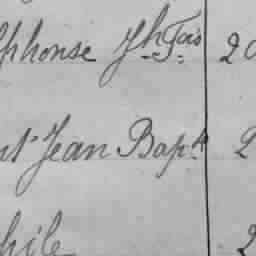 lphonse Jh Fois 20
nt Jean Bapte 2
hile 2